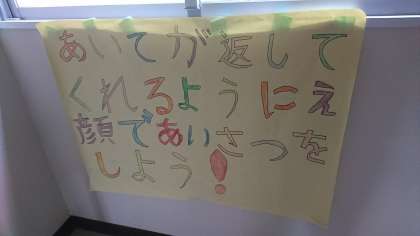 あいてが返して
くれるようにえ
顔であいさつを
しよう!